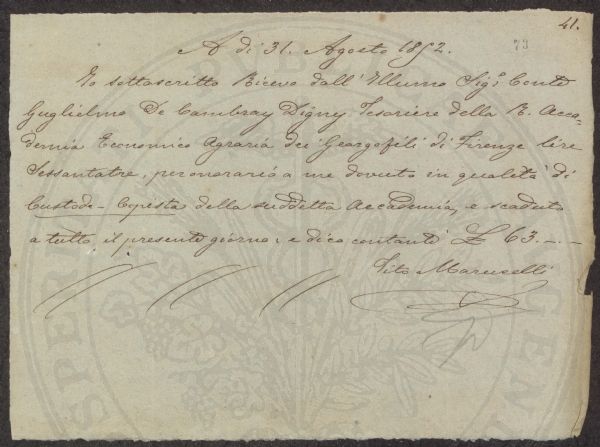 41.
73
A dì 31. Agosto 1852.
Io sottoscritto Ricevo dall' Illumo Sig.e Conte
Guglielmo De Cambray Digny Tesoriere della R. Acca=
demia Economico Agraria dei Georgofili di Firenze lire
Sessantatre, per onorario a me dovuto in qualità di
Custode-Copista della suddetta Accademia, e scaduto
a tutto il presente giorno, e dico contanti £ 63. - - -
Tito Marucelli